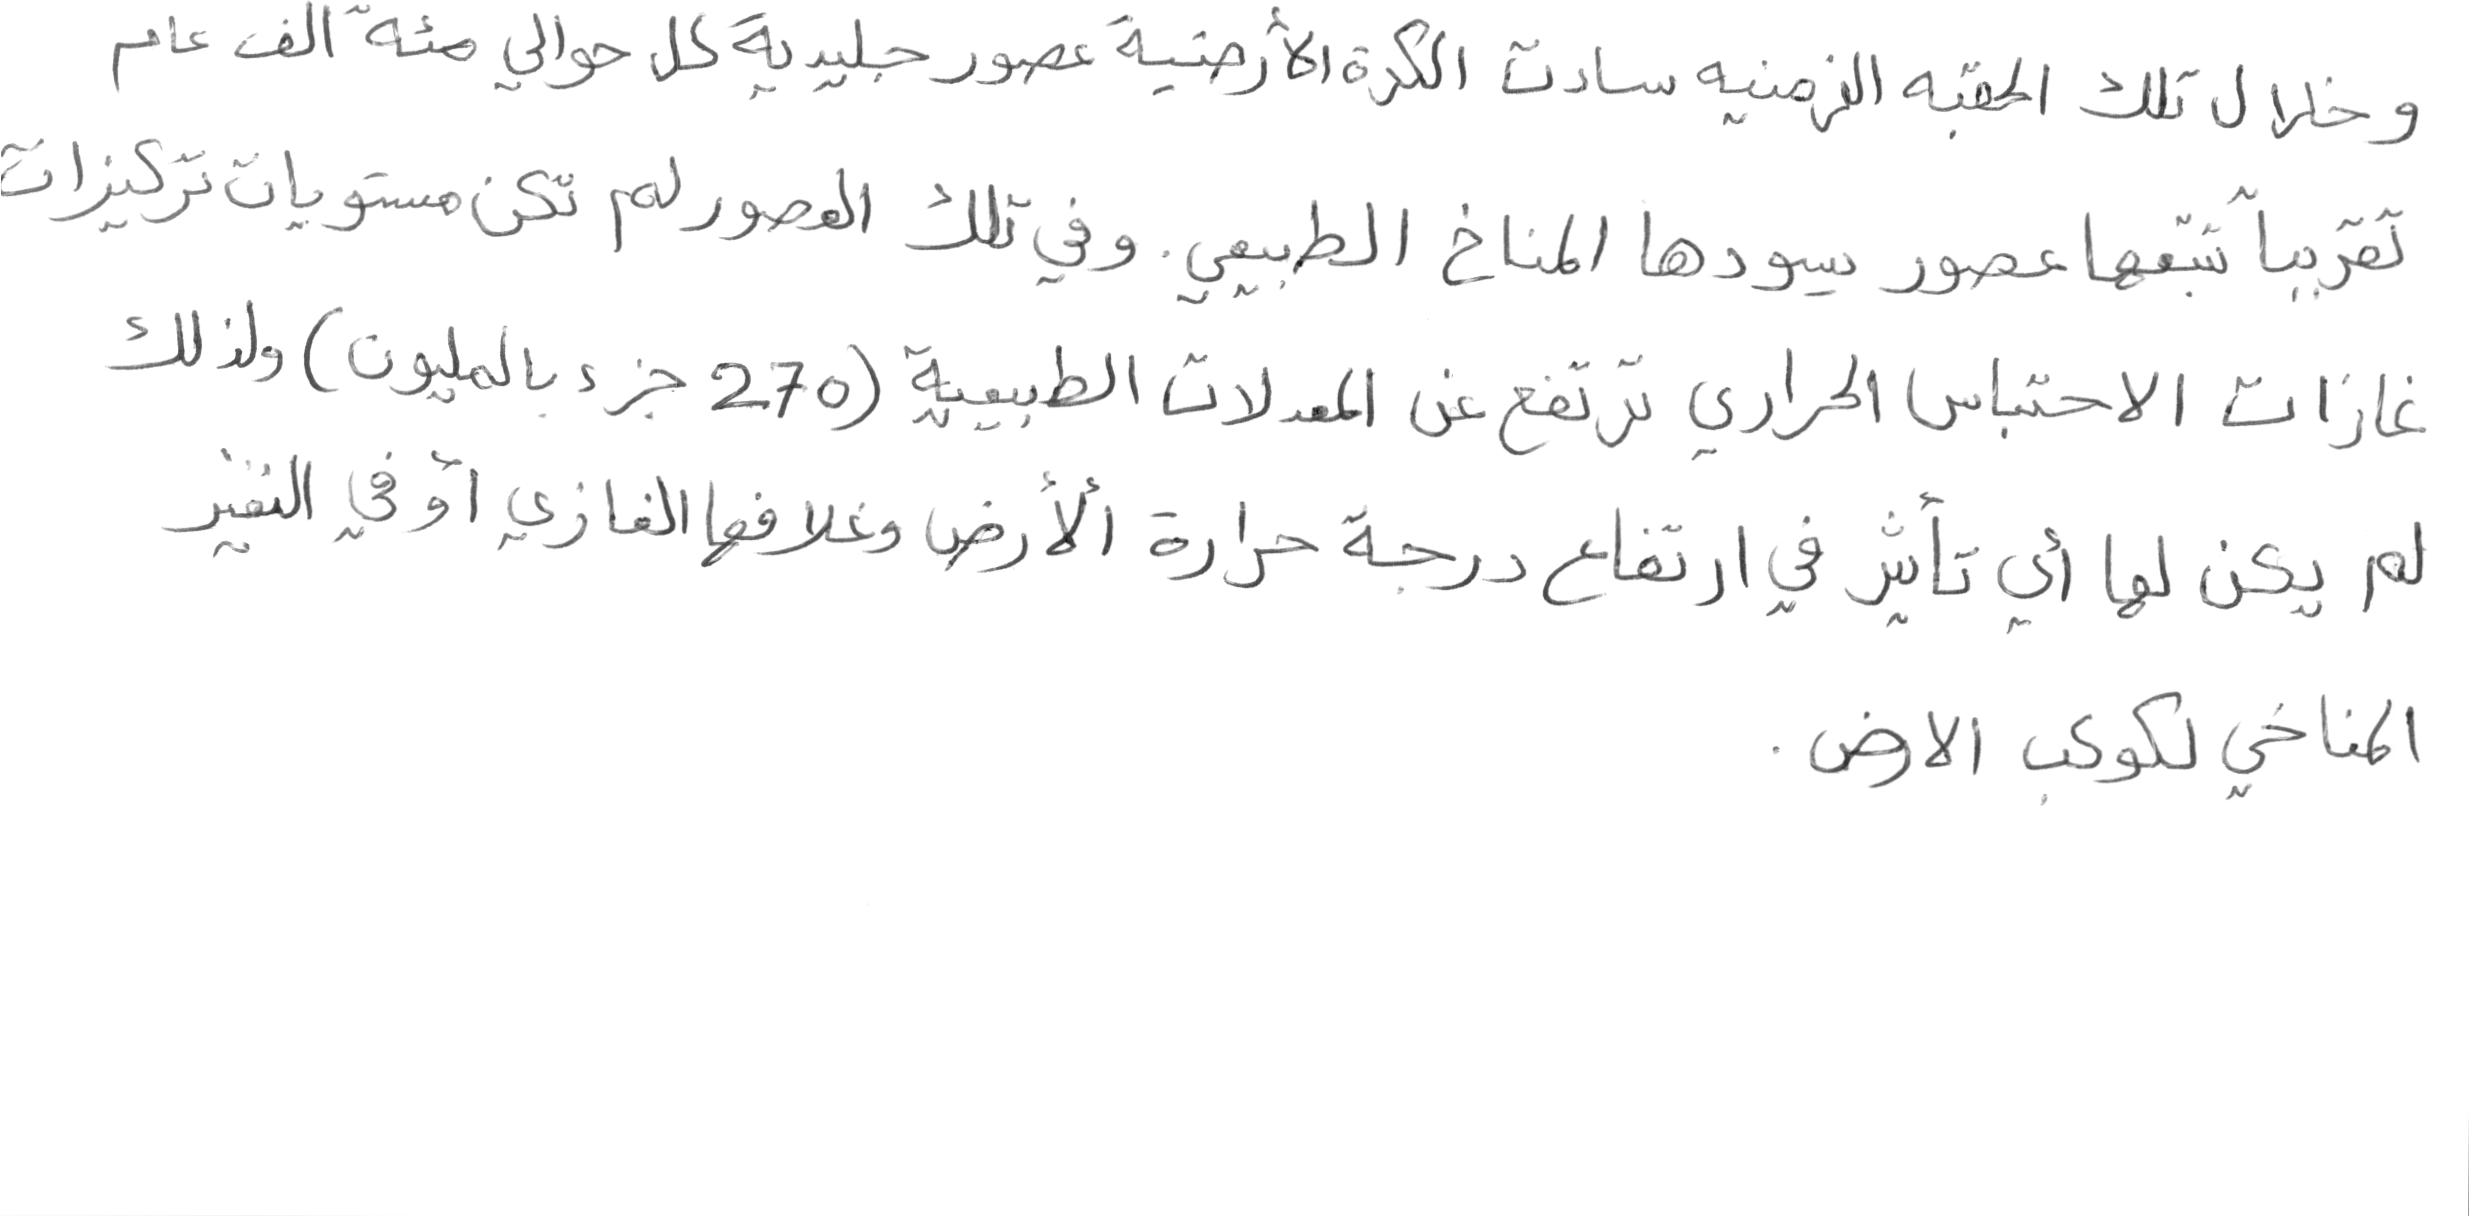 وخلال تلك الحقبه الزمنيه سادت الكرة الأرضية عصور جليدية كل حوالي مئة ألف عام
تقريباً تتبعها عصور يسودها المناخ الطبيعي. وفي تلك العصور لم تكن مستويات تركيزات
غازات الاحتباس الحراري ترتفع عن المعدلات الطبيعية (270 جزء بالمليون) ولذلك
لم يكن لها أي تأثير في ارتفاع درجة حرارة الأرض وغلافها الغازي أو في التغير
المناخي لكوكب الارض.